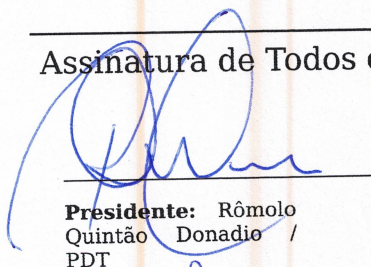 Assinatura de Todos
Presidente: Rômolo
Quintão Donadio /
PDT